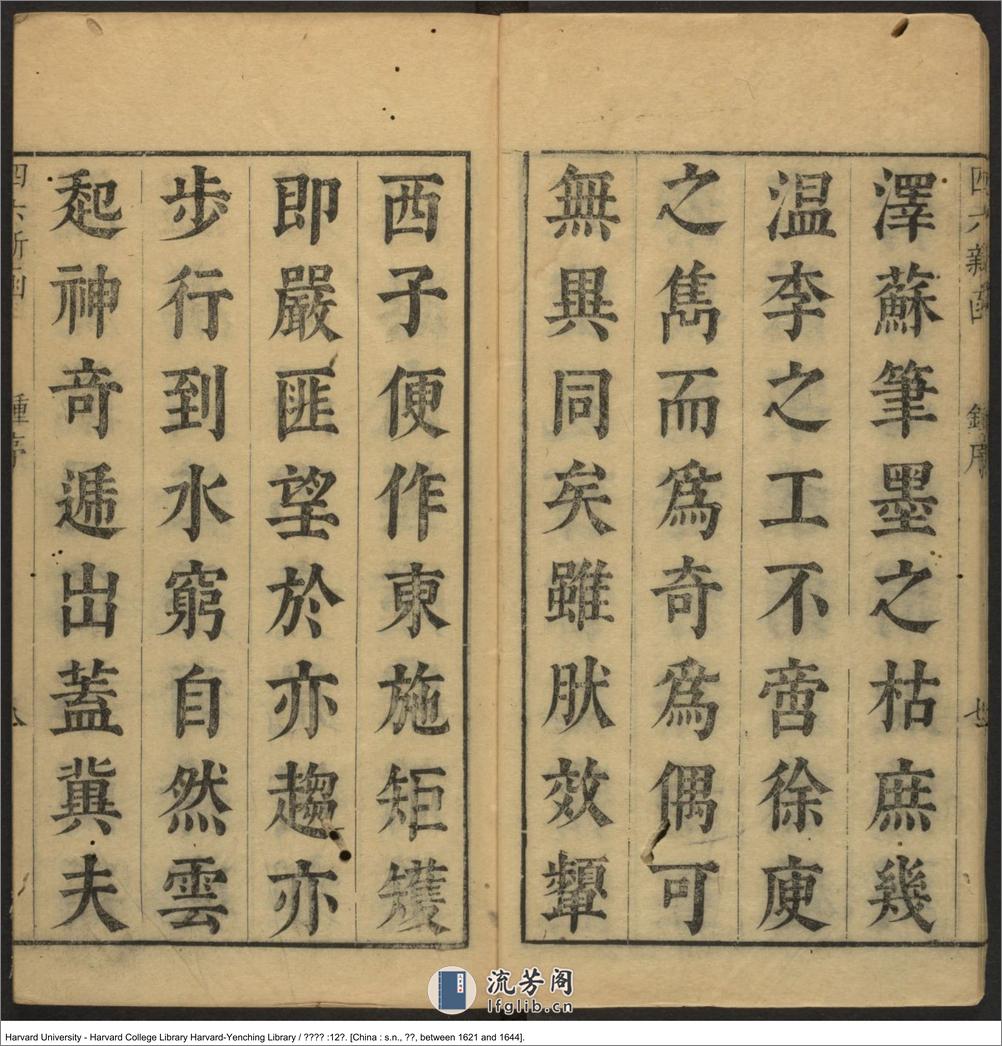 四六新函
鍾序
澤蘇筆墨之枯庶幾
温李之工不啻徐庾
之雋而爲奇爲偶可
無異同矣雖肰效顰
西子便作東施矩矱
即嚴匪望於亦趨亦
步行到水窮自然雲
起神奇遞出蓋冀夫
四六新函
鍾序
流芳阁
lfglib.cn
Harvard University - Harvard College Library Harvard-Yenching Library / ???? :12?. [China : s.n., ??, between 1621 and 1644].